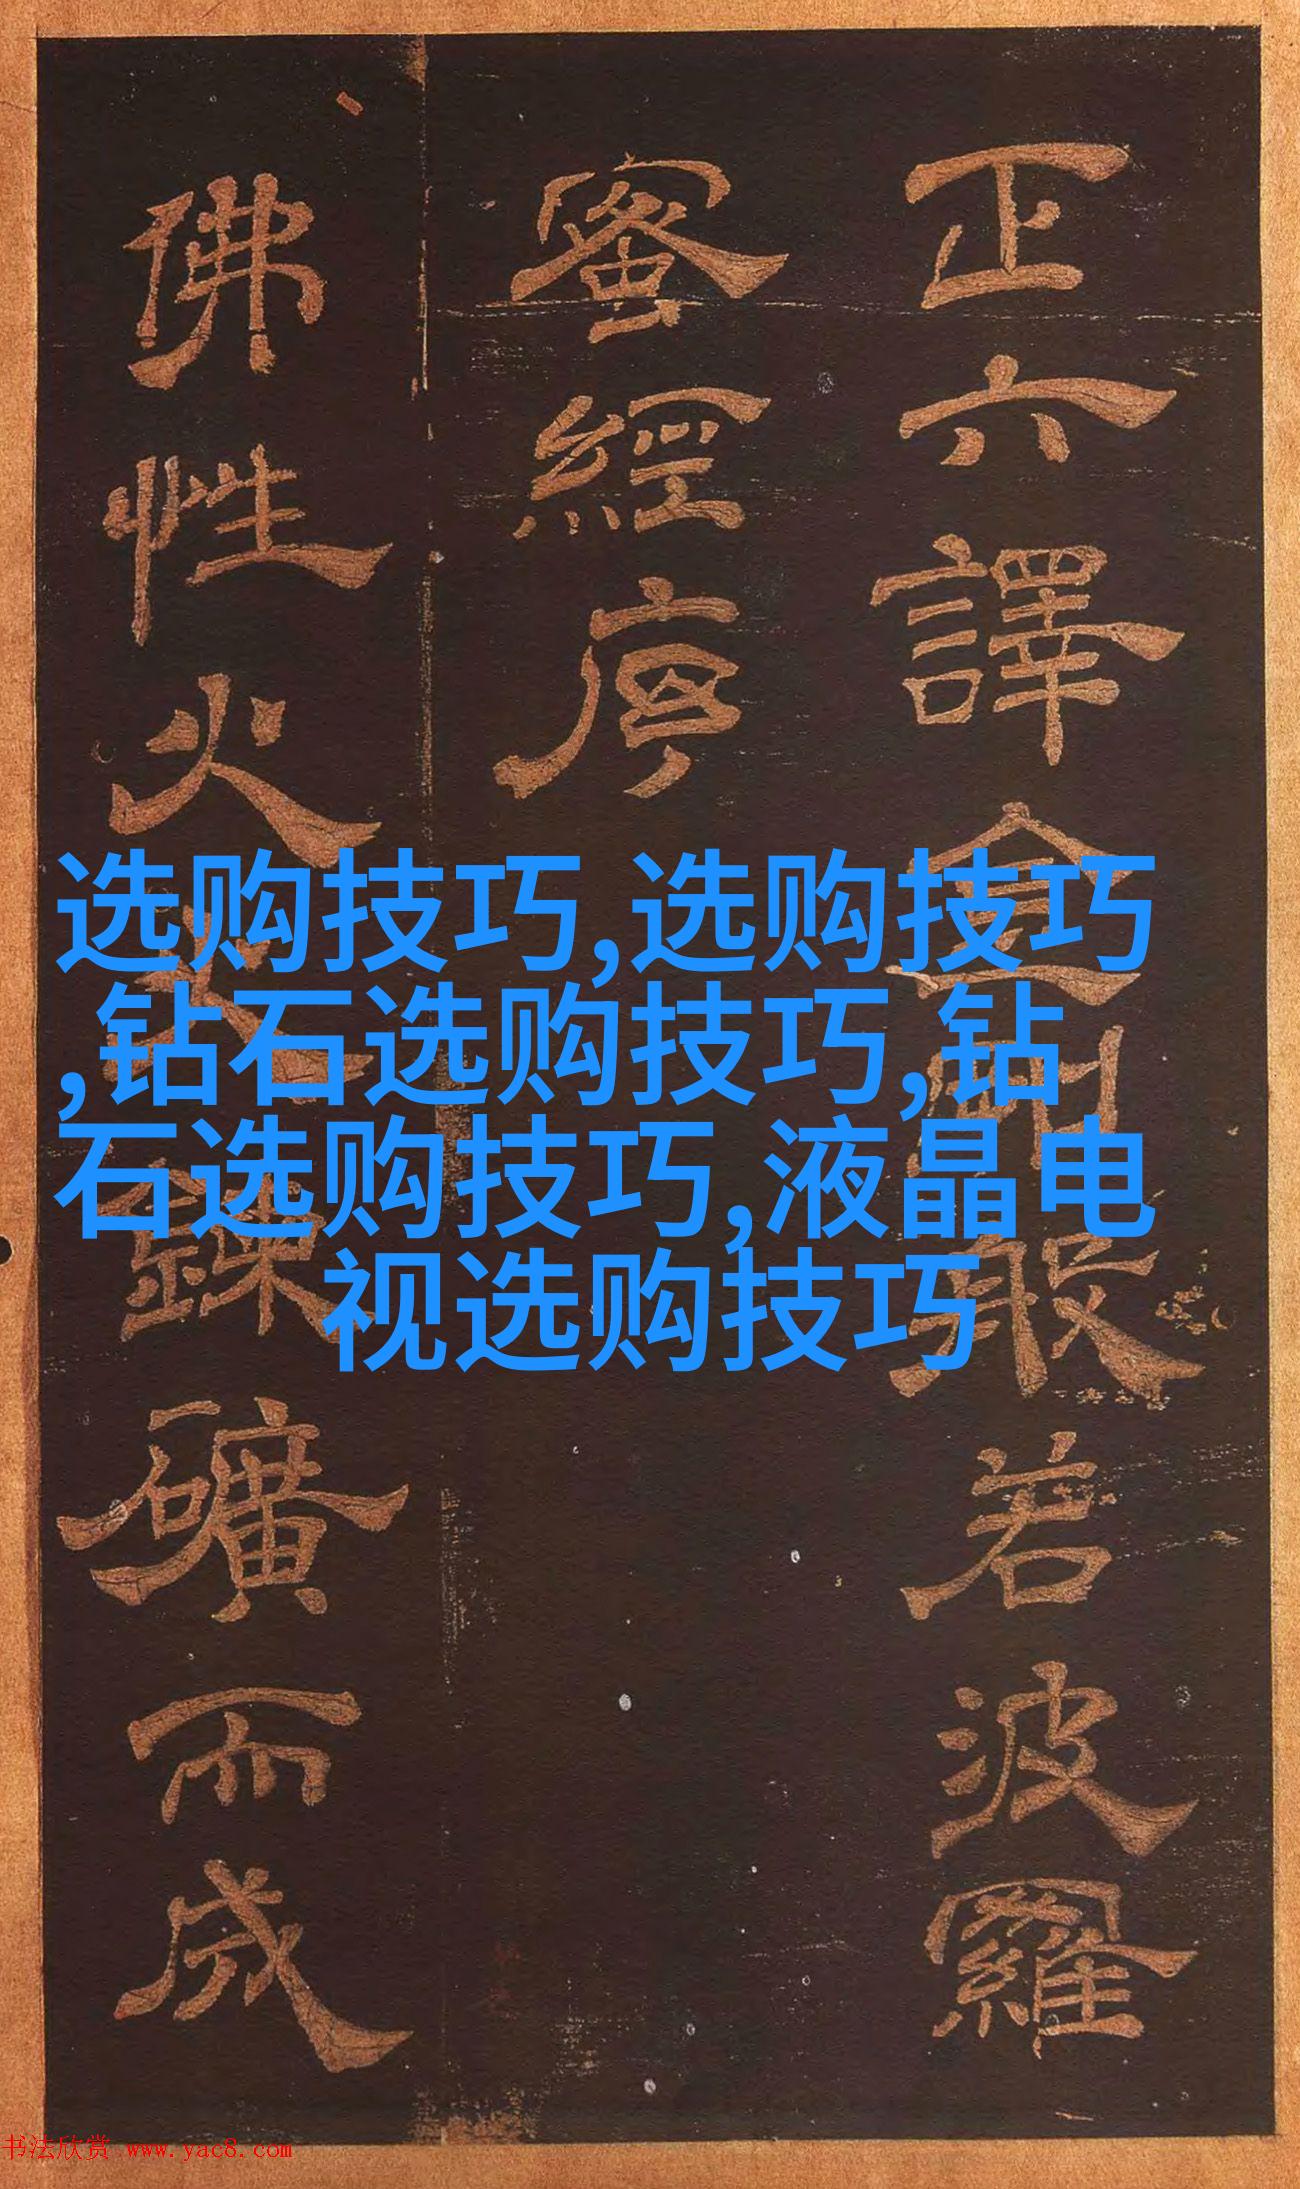 正六譯金剛般若波羅
蜜經序
佛性火鍊礦而成
选购技巧,选购技巧
,钻石选购技巧,钻
石选购技巧,液晶电
视选购技巧
书法欣赏 www.yac8.com